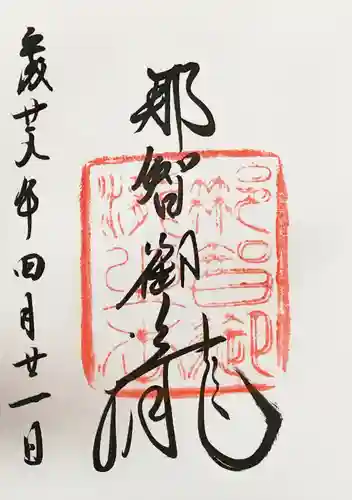 那智御瀧
平成廿八年四月廿一日